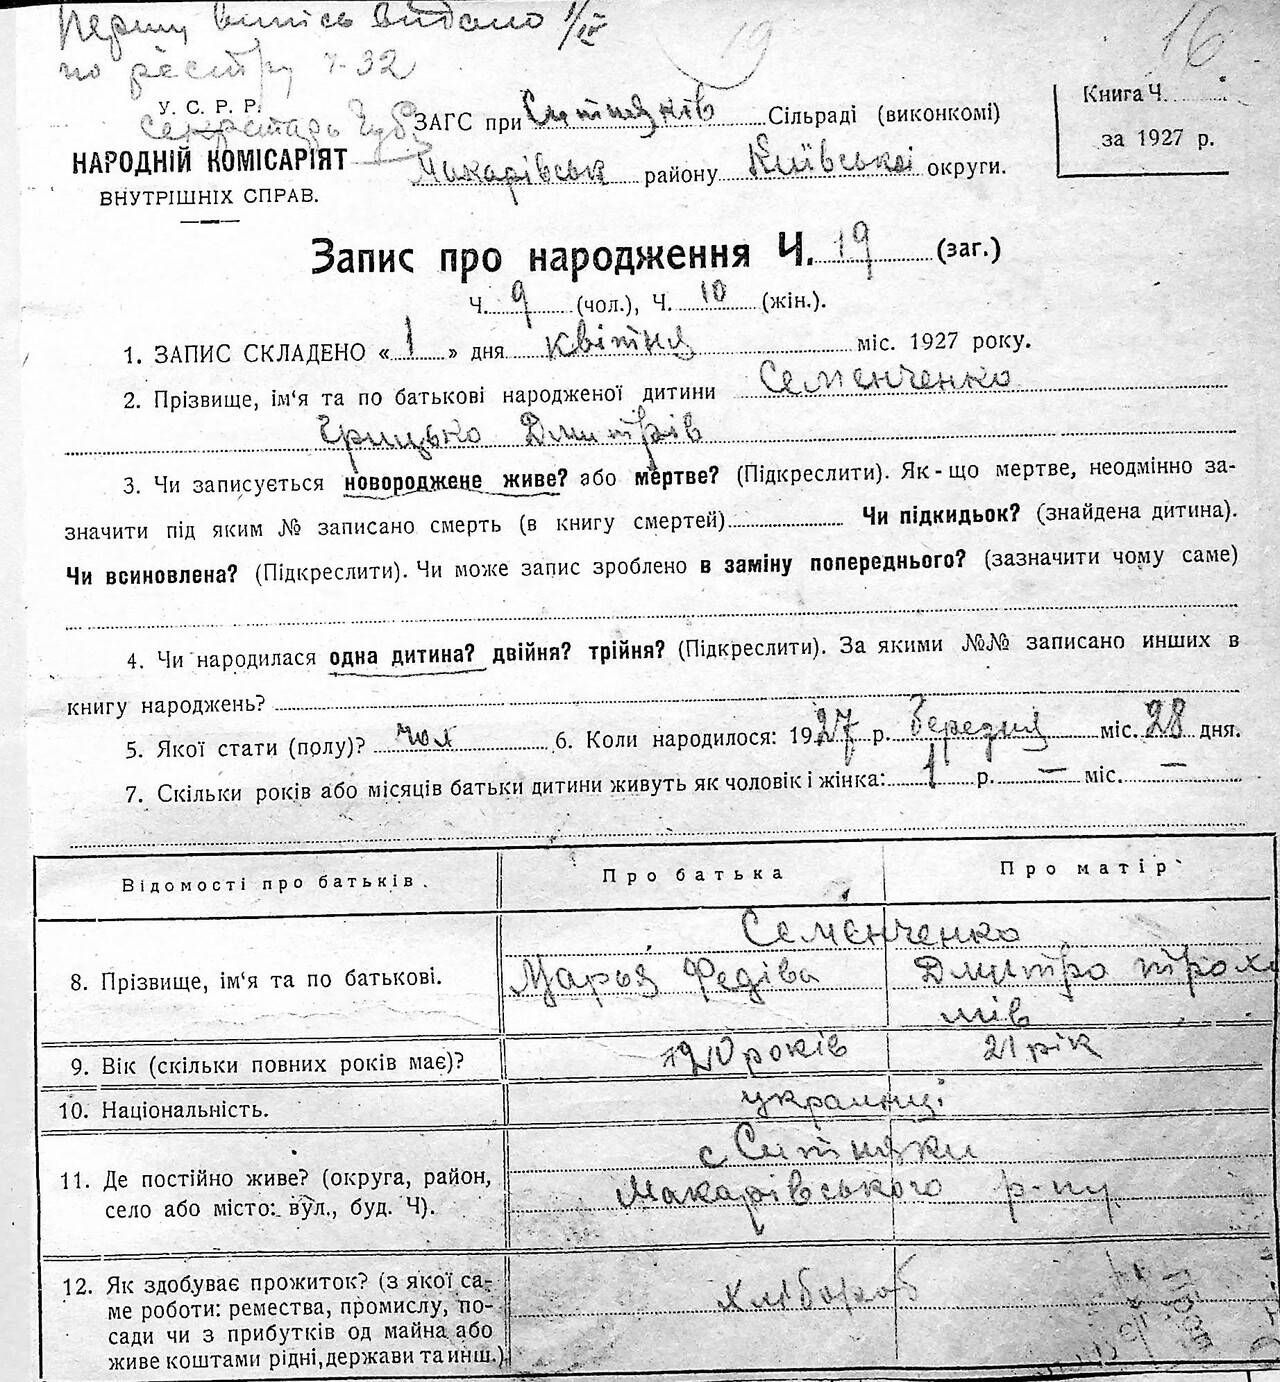 Першу випись видано 1/IV
по реєстру ч-32
19
16
У. С. Р. Р.
Секретарь
НАРОДНІЙ КОМІСАРІЯТ
ВНУТРІШНІХ СПРАВ.
ЗАГС при Ситняків Сільраді (виконкомі)
Макарівськ району Київської округи.
Книга Ч.
за 1927 р.
Запис про народження Ч. 19 (заг.)
Ч. 9 (чол.), Ч. 10 (жін.).
1. ЗАПИС СКЛАДЕНО «1» дня квітня міс. 1927 року.
2. Прізвище, ім‘я та по батькові народженої дитини Семенченко
Грицько Дмитрів
3. Чи записується новороджене живе? або мертве? (Підкреслити). Як-що мертве, неодмінно за-
значити під яким № записано смерть (в книгу смертей) Чи підкидьок? (знайдена дитина).
Чи всиновлена? (Підкреслити). Чи може запис зроблено в заміну попереднього? (зазначити чому саме)
4. Чи народилася одна дитина? двійня? трійня? (Підкреслити). За якими №№ записано инших в
книгу народжень?
5. Якої стати (полу)? чол 6. Коли народилося: 1927 р. березня міс. 28 дня.
7. Скільки років або місяців батьки дитини живуть як чоловік і жінка: 1 р. — міс. —
Відомості про батьків.
Про батька
Про матір
8. Прізвище, ім‘я та по батькові.
Семенченко
Марья Федіва
Дмитро Трохи
мів
9. Вік (скільки повних років має)?
років
21 рік
10. Національність.
украинці
11. Де постійно живе? (округа, район,
село або місто: вул., буд. Ч).
с Ситняки
Макарівського р-ну
12. Як здобуває прожиток? (з якої са-
ме роботи: ремества, промислу, по-
сади чи з прибутків од майна або
живе коштами рідні, держави та инш.)
хлібороб